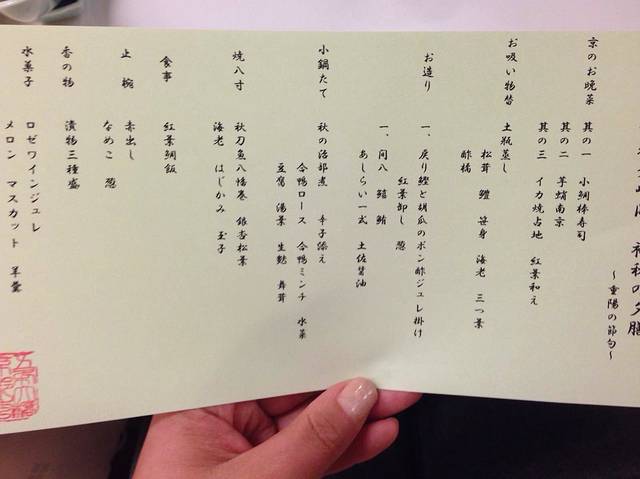 初秋の夕膳
〜重陽の節句〜
京のお晩菜
其の一 小鯛棒寿司
其の二 芋蛸南京
其の三 イカ焼占地 紅葉和え
お吸い物替
土瓶蒸し
松茸 鱧 笹身 海老 三つ葉
酢橘
お造り
一、戻り鰹と胡瓜のポン酢ジュレ掛け
紅葉卸し 葱
一、間八 鯣 鮪
あしらい一式 土佐醤油
小鍋たて
秋の治部煮 辛子添え
合鴨ロース 合鴨ミンチ 水菜
豆腐 湯葉 生麩 舞茸
焼八寸
秋刀魚八幡巻 銀杏松葉
海老 はじかみ 玉子
食事
紅葉鯛飯
止椀
赤出し
なめこ 葱
香の物
漬物三種盛
水菓子
ロゼワインジュレ
メロン マスカット 羊羹